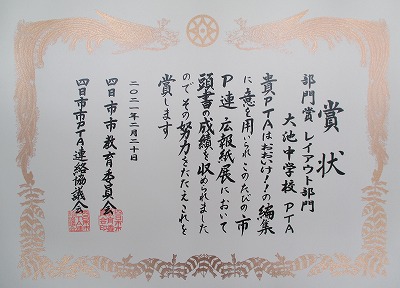 賞状
部門賞 レイアウト部門
大池中学校 PTA
貴PTAはおおいけの編集
に意を用いられこのたびの市
P連広報紙展において
頭書の成績を収められました
のでその努力をたたえこれを
賞します
二〇二一年二月二十日
四日市市教育委員会
四日市市PTA連絡協議会